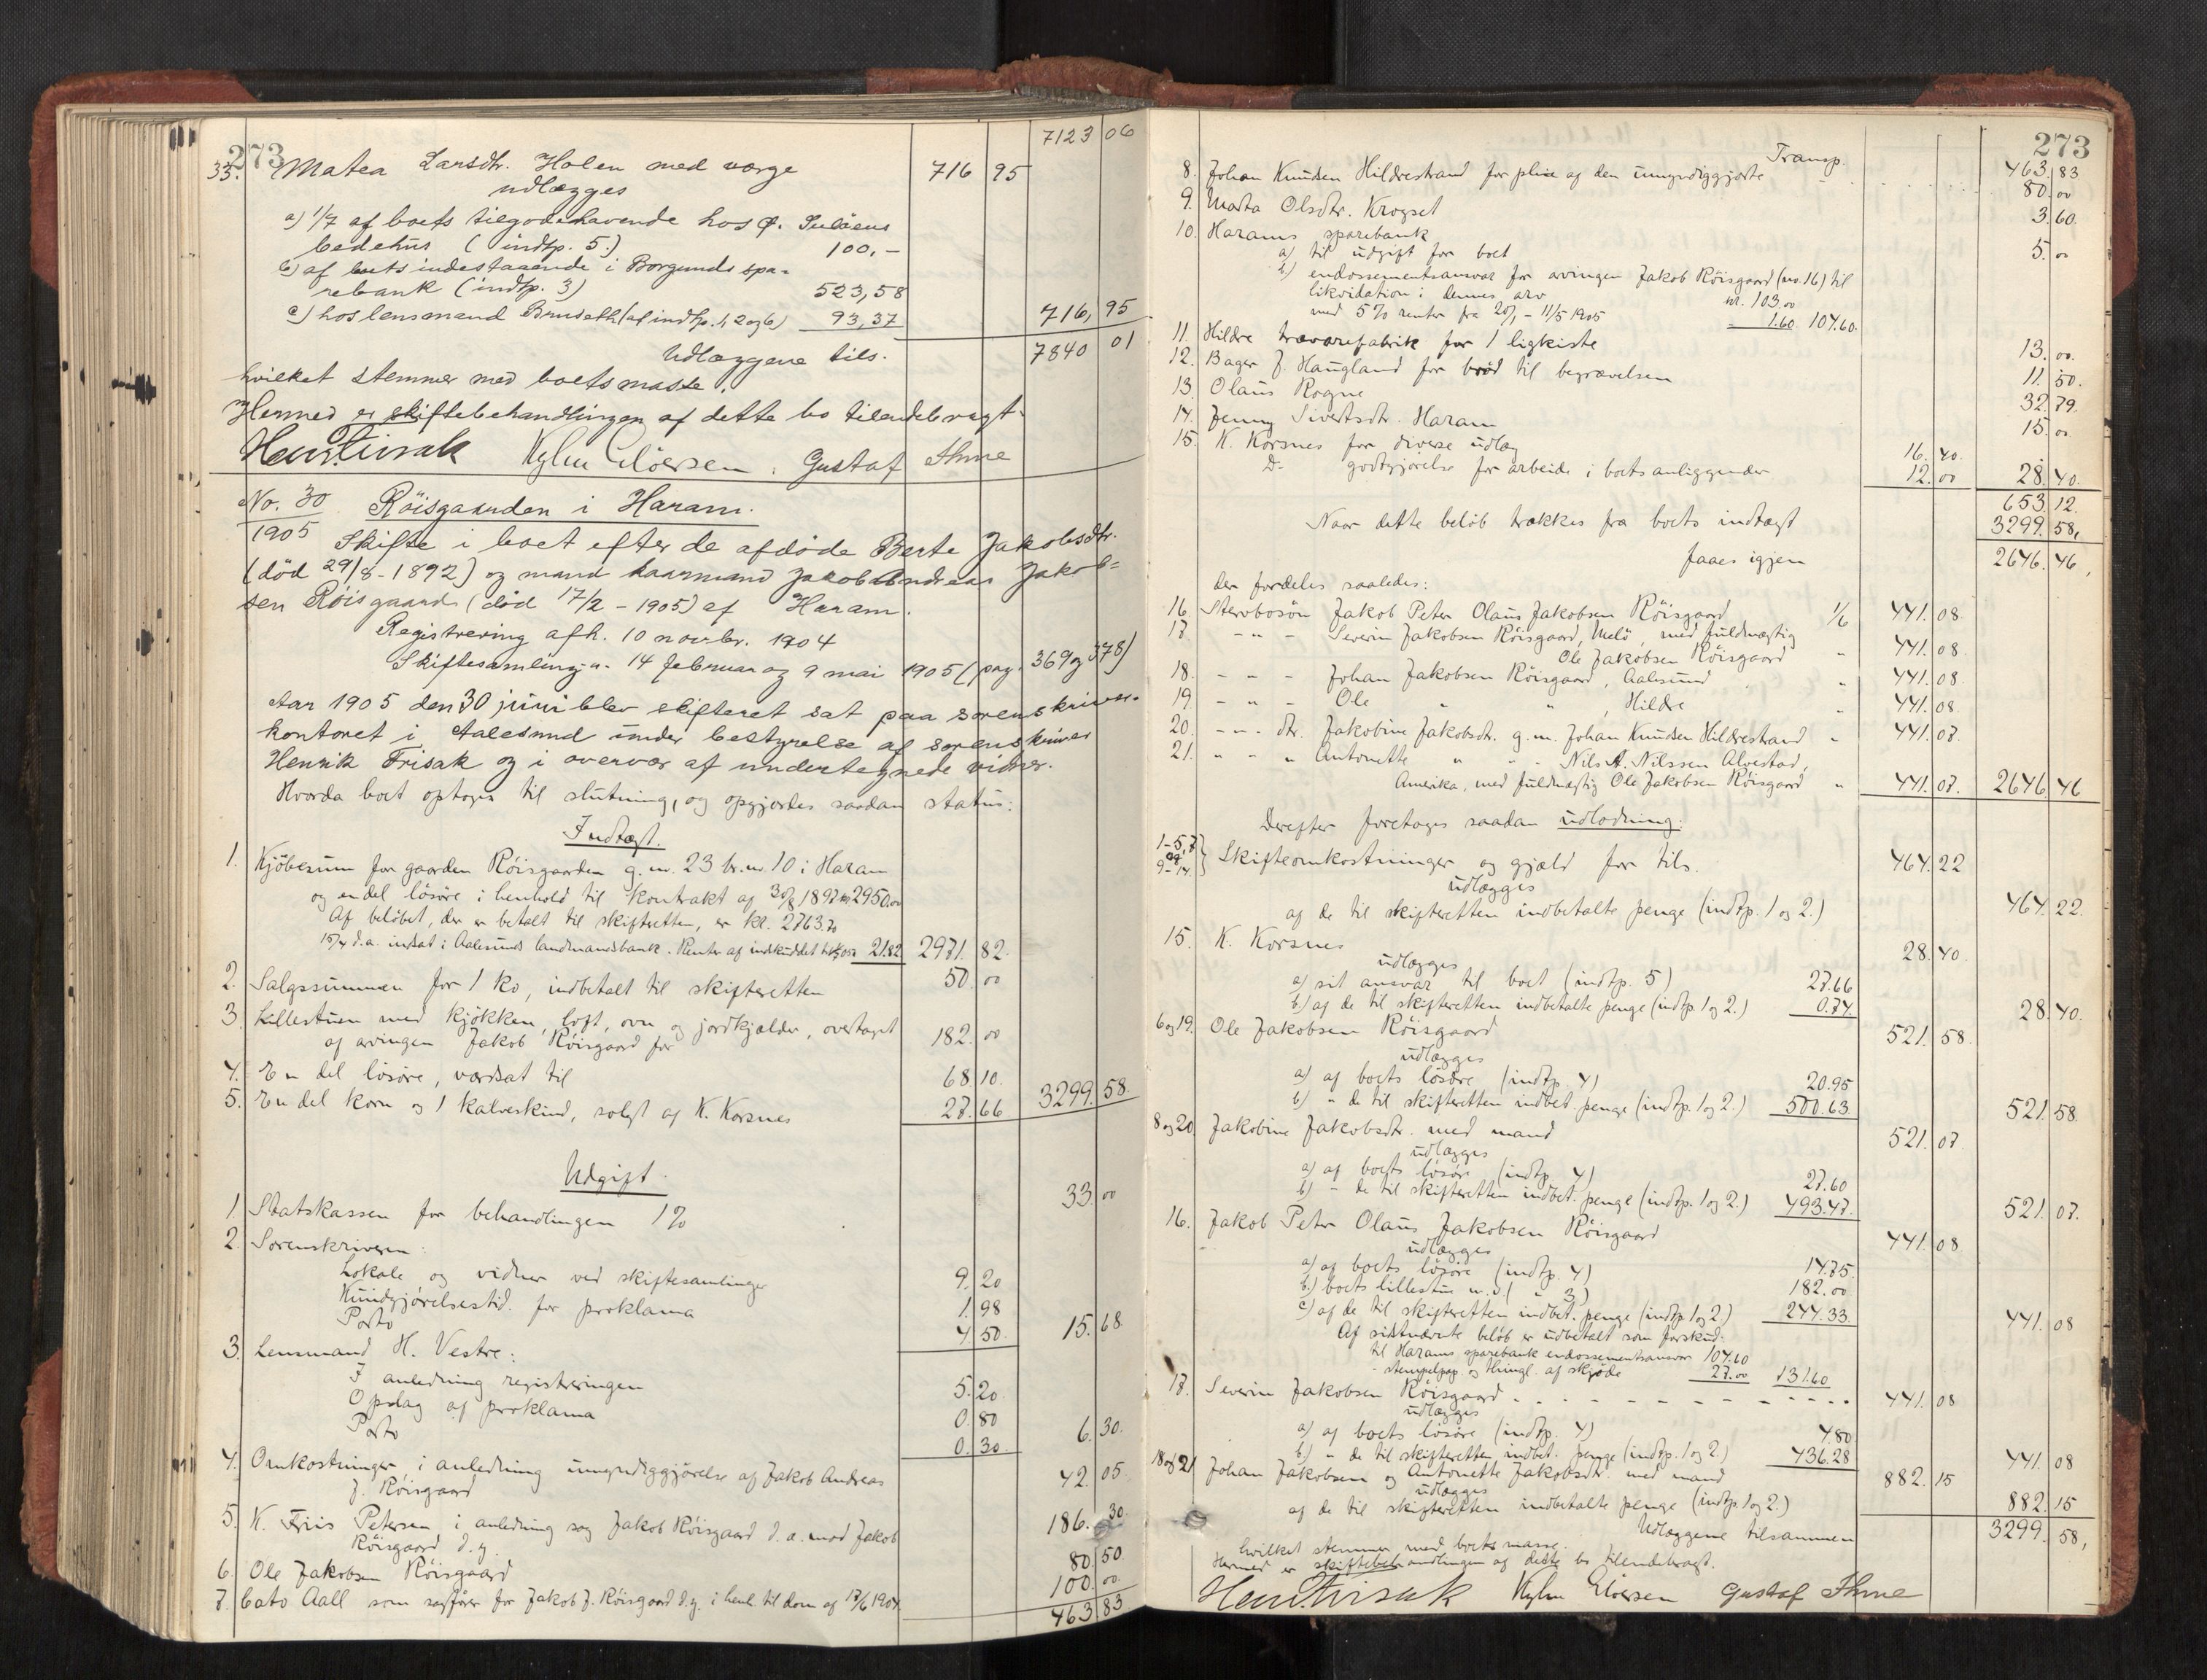 273
7123 06
33. Matea Larsdtr. Holen med værge 716 95
udlægges
a) 1/7 af boets tilgodehavende hos Ø. Suløens
bedehus (indtp. 5.) 100,-
b) af boets indestaaende i Borgunds spa-
rebank (indtp. 3) 523,58
c) hos lensmand Brudeth (af indtp. 1, 2 og 6) 93,37 716,95
Udlæggene tils. 7840 01
hvilket stemmer med boets masse.
Hermed er skiftebehandlingen af dette bo tilendebragt.
Henr. Frisak Gustaf Thme
No. 30 Röisgaarden i Haram.
1905 Skifte i boet efter de afdöde Berte Jakobsdtr.
(död 29/8-1892) og mand kaarmand Jakob Andreas Jakob=
sen Röisgaard (död 17/2-1905) af Haram.
Registrering afh. 10 novbr. 1904
Skiftesamling u. 14 februar og 9 mai 1905 (pag. 369 og 378)
Aar 1905 den 30 juni blev skifteret sat paa sorenskriver-
kontoret i Aalesund under bestyrelse af sorenskriver
Henrik Frisak og i overvær af undertegnede vidner.
Hvorda boet optoges til slutning, og opgjordes saadan status:
Indtægt.
1. Kjöbesum for gaarden Röisgaarden g.no. 23 br.no. 10 i Haram
og en del lösöre i henhold til kontrakt af 30/8 1892 kr 2950.00
Af belöbet, der er betalt til skifteretten, er kr. 2763.70
15/4 d.a. indsat i Aalesunds landmandsbank. Renter af indskuddet 21.82 2971. 82.
2. Salgssummen for 1 ko, indbetalt til skifteretten 50. 00
3. Lillestuen med kjökken, loft, ovn og jordkjælder, overtaget
af arvingen Jakob Röisgaard for 182. 00
4. En del lösöre, værdsat til 68. 10.
5. En del korn og 1 kalveskind, solgt af K. Korsnes 27. 66 3299. 58.
Udgift.
1. Statskassen for behandlingen 1% 33. 00
2. Sorenskriveren:
Lokale og vidner ved skiftesamlinger 9. 20
Kundgjörelsestid. for proklama 1. 98
Porto 4. 50. 15. 68
3. Lensmand H. Vestre:
I anledning registreringen 5. 20.
Opslag af proklama 0. 80
Porto 0. 30 6. 30.
4. Omkostninger i anledning umyndiggjörelse af Jakob Andreas
J. Röisgaard 42. 05
5. K. Friis Petersen i anledning sag Jakob Röisgaard d.æ. mod Jakob
Röisgaard d.y. 186. 30
6. Ole Jakobsen Röisgaard 80. 50.
7. Cato Aall som sagförer for Jakob J. Röisgaard d.y. i henh. til dom af 17/6 1904. 100. 00
463. 83
273
Transp. 463. 83
8. Johan Knudsen Hildrestrand for pleie af den umyndiggjorte 80. 00
9. Marta Olsdtr. Krogset 3. 60.
10. Harams sparebank
a) til udgift for boet 5. 00
b) endossementsansvar for arvingen Jakob Röisgaard (no. 16) til
likvidation i dennes arv kr. 103.00
med 5% renter fra 20/1 - 11/5 1905 1.60. 104.60.
11. Hildre trævarefabrik for 1 ligkiste 13. 00.
12. Bager J. Haugland for bröd til begravelsen 11. 50.
13. Olaus Rogne 32. 79.
14. Jenny Sivertsdtr. Haram 15. 00
15. K. Korsnes for diverse udlæg 16. 40.
Do godtgjörelse for arbeide i boets anliggender 12. 00 28. 40.
653. 12.
Naar dette belöb trækkes fra boets indtægt 3299. 58,
faaes igjen 2646. 46,
der fordeles saaledes:
16. Stervbosön Jakob Peter Olaus Jakobsen Röisgaard 1/6 441. 08.
17 -"- Severin Jakobsen Röisgaard, Ulelö, med fuldmægtig
Ole Jakobsen Röisgaard " 441. 08.
18. - " - Johan Jakobsen Röisgaard, Aalesund " 441. 08.
19. - " - Ole " ", Hildre " 441. 08
20. - " - dtr. Jakobine Jakobsdtr. g.m. Johan Knudsen Hildrestrand " 441. 07.
21. " - " Antonette " " - Nils A. Nilssen Alvestad,
Amerika, med fuldmægtig Ole Jakobsen Röisgaard " 441. 07. 2646. 46
Derefter foretoges saadan udlodning:
1-5, 7 og 9-14. } Skifteomkostninger og gjæld for tils. 464. 22
udlægges
af de til skifteretten indbetalte penge (indtp. 1 og 2.) 464. 22.
15. K. Korsnes 28. 40.
udlægges
a) sit ansvar til boet (indtp. 5) 27.66
b) af de til skifteretten indbetalte penge (indtp. 1 og 2.) 0.74. 28. 40.
6 og 19. Ole Jakobsen Röisgaard 521. 58.
udlægges
a) af boets lösöre (indtp. 4) 20.95
b) " de til skifteretten indbet. penge (indtp. 1 og 2.) 500.63. 521. 58.
8 og 20. Jakobine Jakobsdtr. med mand 521. 07.
udlægges
a) af boets lösöre (indtp. 4) 27.60
b) - de til skifteretten indbet. penge (indtp. 1 og 2.) 493.47. 521. 07.
16. Jakob Peter Olaus Jakobsen Röisgaard 441. 08
udlægges
a) af boets lösöre (indtp. 4) 14.75.
b.) boets lillestue m.v. ( " 3) 182.00
c) af de til skifteretten indbet. penge (indtp. 1 og 2.) 244.33. 441. 08
Af sidstnævnte belöb er udbetalt som forskud:
til Harams sparebank endossementsansvar 104.60
- stempelpap. og thingl. af skjöde 27.00 131.60
17. Severin Jakobsen Röisgaard 441. 08
udlægges
a) af boets lösöre (indtp. 4) 4.80
b) " de til skifteretten indbet. penge (indtp. 1 og 2.) 436.28 441. 08
18 og 21. Johan Jakobsen og Antonette Jakobsdtr. med mand 882. 15
udlægges
af de til skifteretten indbetalte penge (indtp. 1 og 2.) 882. 15
Udlæggene tilsammen 3299. 58,
hvilket stemmer med boets masse.
Hermed er skiftebehandlingen af dette bo tilendebragt.
Henr. Frisak Gustaf Thme